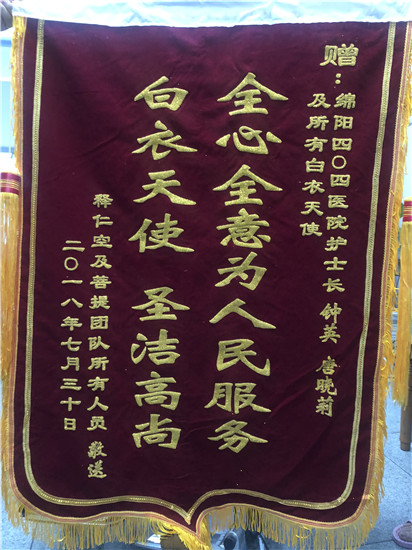 赠：绵阳四〇四医院护士长 钟英 唐晓莉
及所有白衣天使
全心全意为人民服务
白衣天使 圣洁高尚
释仁空及菩提团队所有人员 敬送
二〇一八年七月三十日